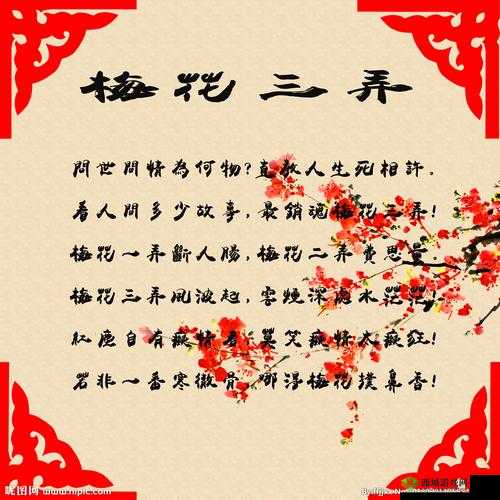 梅花三弄
問世間情為何物?直教人生死相許.
看人間多少故事,最銷魂梅花三弄!
梅花一弄斷人腸,梅花二弄費思量.
梅花三弄風波起,雲煙深處水茫茫!
紅塵自有癡情者,莫笑癡情太癡狂!
若非一番寒徹骨,哪得梅花撲鼻香!
昵图网 www.nipic.com